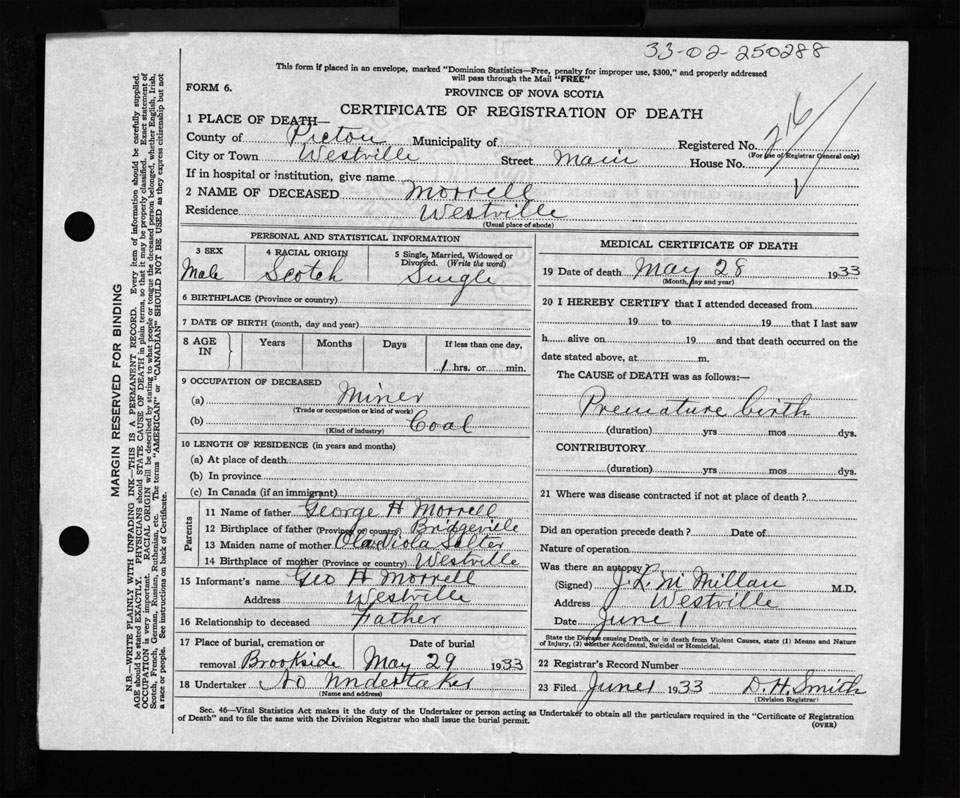 33-02-250288
This form if placed in an envelope, marked "Dominion Statistics—Free, penalty for improper use, $300," and properly addressed
will pass through the Mail "FREE"
FORM 6.
PROVINCE OF NOVA SCOTIA
CERTIFICATE OF REGISTRATION OF DEATH
1 PLACE OF DEATH—
County of Pictou Municipality of Registered No. 216
(For use of Registrar General only)
City or Town Westville Street Main House No.
If in hospital or institution, give name
2 NAME OF DECEASED Morrell
Residence Westville
(Usual place of abode)
PERSONAL AND STATISTICAL INFORMATION
3 SEX 4 RACIAL ORIGIN 5 Single, Married, Widowed or Divorced. (Write the word)
Male Scotch Single
6 BIRTHPLACE (Province or country)
7 DATE OF BIRTH (month, day and year)
8 AGE IN Years Months Days If less than one day,
1 hrs. or min.
9 OCCUPATION OF DECEASED
(a) Miner
(Trade or occupation or kind of work)
(b) Coal
(Kind of industry)
10 LENGTH OF RESIDENCE (in years and months)
(a) At place of death
(b) In province
(c) In Canada (if an immigrant)
Parents
11 Name of father George H Morrell
12 Birthplace of father (Province or country) Bridgeville
13 Maiden name of mother Ola Viola Salter
14 Birthplace of mother (Province or country) Westville
15 Informant's name Geo H Morrell
Address Westville
16 Relationship to deceased Father
17 Place of burial, cremation or Date of burial
removal Brookside May 29 1933
18 Undertaker No Undertaker
(Name and address)
MEDICAL CERTIFICATE OF DEATH
19 Date of death May 28 1933
(Month, day and year)
20 I HEREBY CERTIFY that I attended deceased from
19 to 19 that I last saw
h alive on 19 and that death occurred on the
date stated above, at m.
The CAUSE of DEATH was as follows:—
Premature birth
(duration) yrs mos dys.
CONTRIBUTORY
(duration) yrs mos dys.
21 Where was disease contracted if not at place of death?
Did an operation precede death? Date of
Nature of operation
Was there an autopsy?
(Signed) J. L. McMillan M.D.
Address Westville
Date June 1
State the Disease causing Death, or in death from Violent Causes, state (1) Means and Nature
of Injury, (2) whether Accidental, Suicidal or Homicidal.
22 Registrar's Record Number
23 Filed June 1 1933 D. H. Smith
(Division Registrar)
Sec. 46—Vital Statistics Act makes it the duty of the Undertaker or person acting as Undertaker to obtain all the particulars required in the "Certificate of Registration
of Death" and to file the same with the Division Registrar who shall issue the burial permit.
(OVER)
MARGIN RESERVED FOR BINDING
N.B.—WRITE PLAINLY WITH UNFADING INK—THIS IS A PERMANENT RECORD. Every item of information should be carefully supplied.
AGE should be stated EXACTLY. PHYSICIANS should STATE CAUSE OF DEATH in plain terms, so that it may be properly classified. Exact statement of
OCCUPATION is very important. RACIAL ORIGIN will be described by stating to what people or tongue the deceased person belonged, whether English, Irish,
Scotch, French, German, Russian, Ruthenian, etc. The terms "AMERICAN" or "CANADIAN" SHOULD NOT BE USED as they express citizenship but not
a race or people. See instructions on back of Certificate.